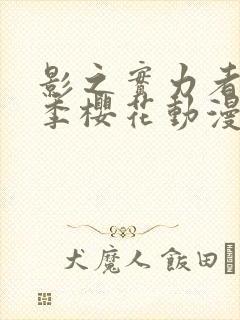 影之實力者
季櫻花動漫
犬魔人 飯田